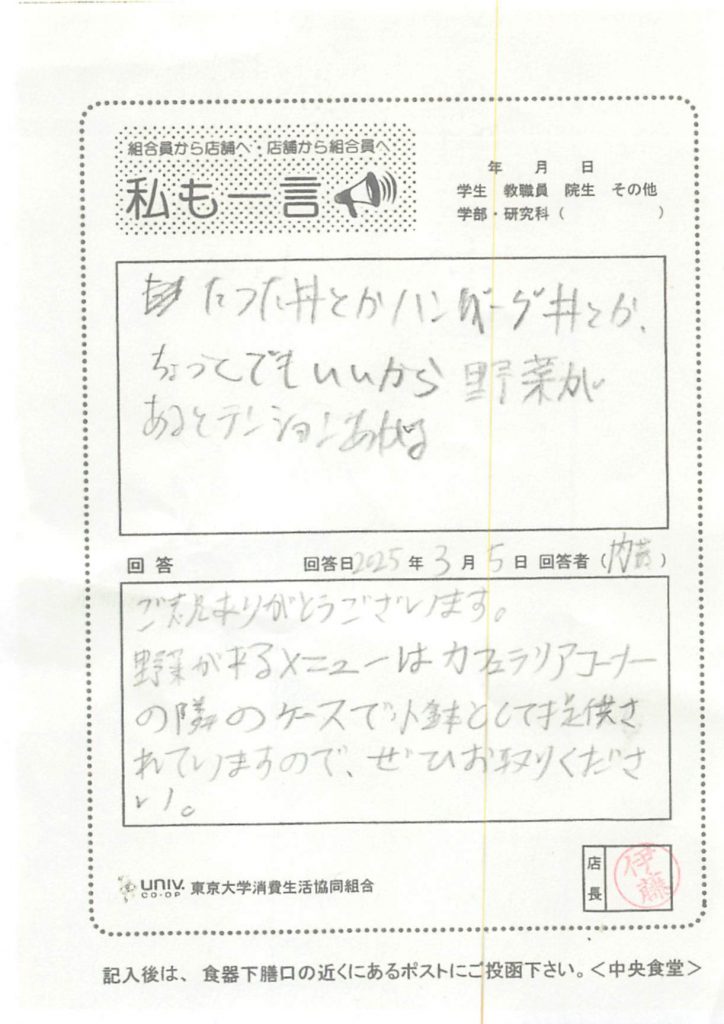 組合員から店舗へ・店舗から組合員へ
私も一言
年 月 日
学生 教職員 院生 その他
学部・研究科（ ）
たつた丼とかハンバーグ丼とか、
ちょっとでもいいから野菜が
あるとテンションあがる
回答 回答日2025年3月5日 回答者（ ）
ご意見ありがとうございます。
野菜が来るメニューはカフェテリアコーナー
の隣のケースで小鉢として提供さ
れていますので、ぜひお取りくださ
い。
UNIV. CO-OP 東京大学消費生活協同組合
店長 伊藤
記入後は、食器下膳口の近くにあるポストにご投函下さい。＜中央食堂＞